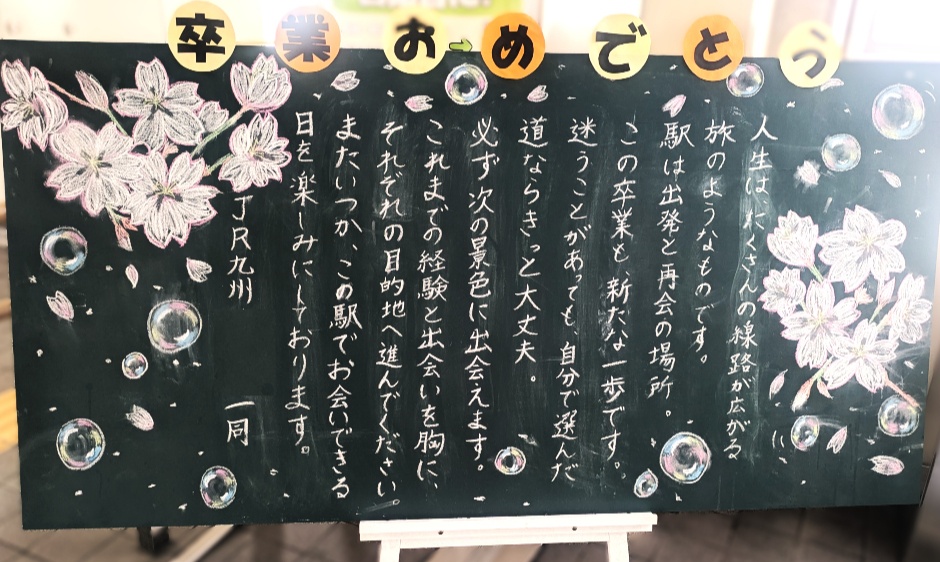 卒業おめでとう
人生はたくさんの線路が広がる
旅のようなものです。
駅は出発と再会の場所。
この卒業も新たな一歩です。
迷うことがあっても、自分で選んだ
道ならきっと大丈夫。
必ず次の景色に出会えます。
これまでの経験と出会いを胸に、
それぞれの目的地へ進んでください。
またいつか、この駅でお会いできる
日を楽しみにしております。
JR九州 一同